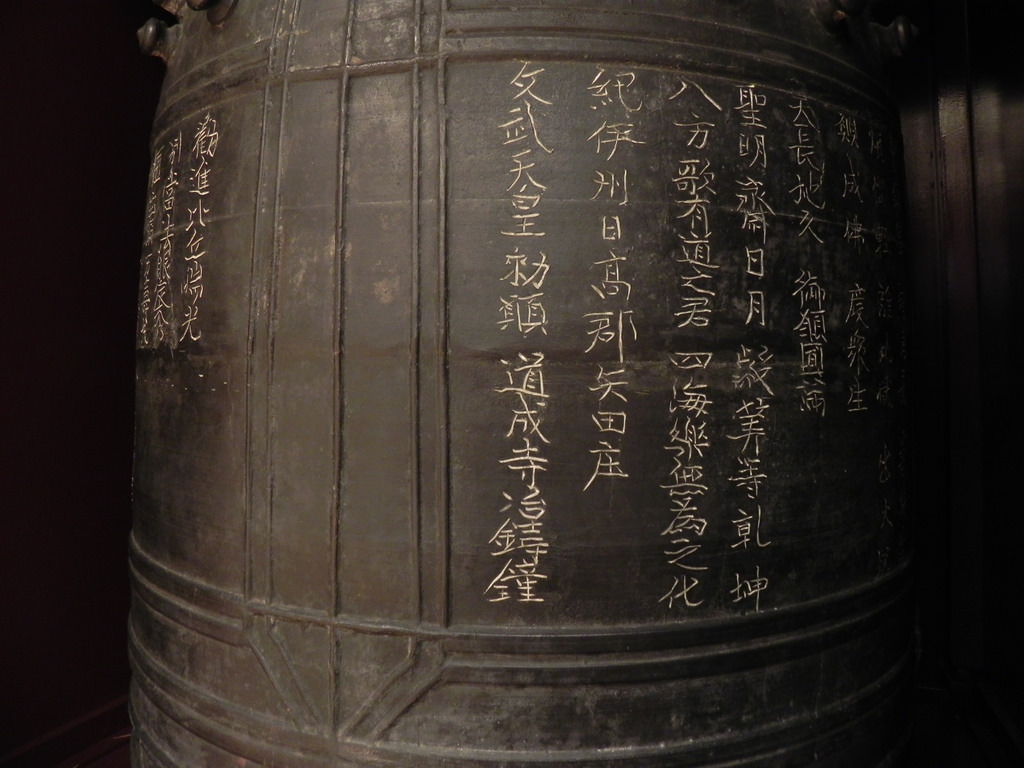 願成佛 度衆生
天長地久 御願圓満
聖明齊日月 叡筭等乾坤
八方歌有道之君 四海樂無為之化
紀伊州日高郡矢田庄
文武天皇勅願 道成寺冶鋳鐘
勸進比丘瑞光
別當法眼定秀